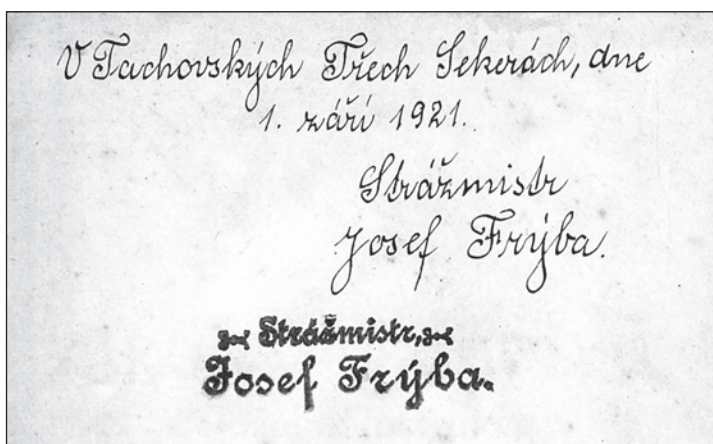 V Tachovských Třech Sekerách, dne
1. září 1921.
Strážmistr
Josef Frýba.
Strážmistr,
Josef Frýba.